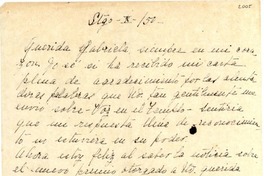 2005
Stgo - X - /50 -
Querida Gabriela, siempre en mi cora-
zón. No sé si ha recibido mi carta
plena de agradecimiento por las
palabras que Ud. tan gentilmente me
envió sobre - Voz en el - sentiría
que mi respuesta llena de reconocimien-
to no estuviera en su poder.
Ahora estoy feliz al saber la noticia sobre
el nuevo premio otorgado a Ud. querida